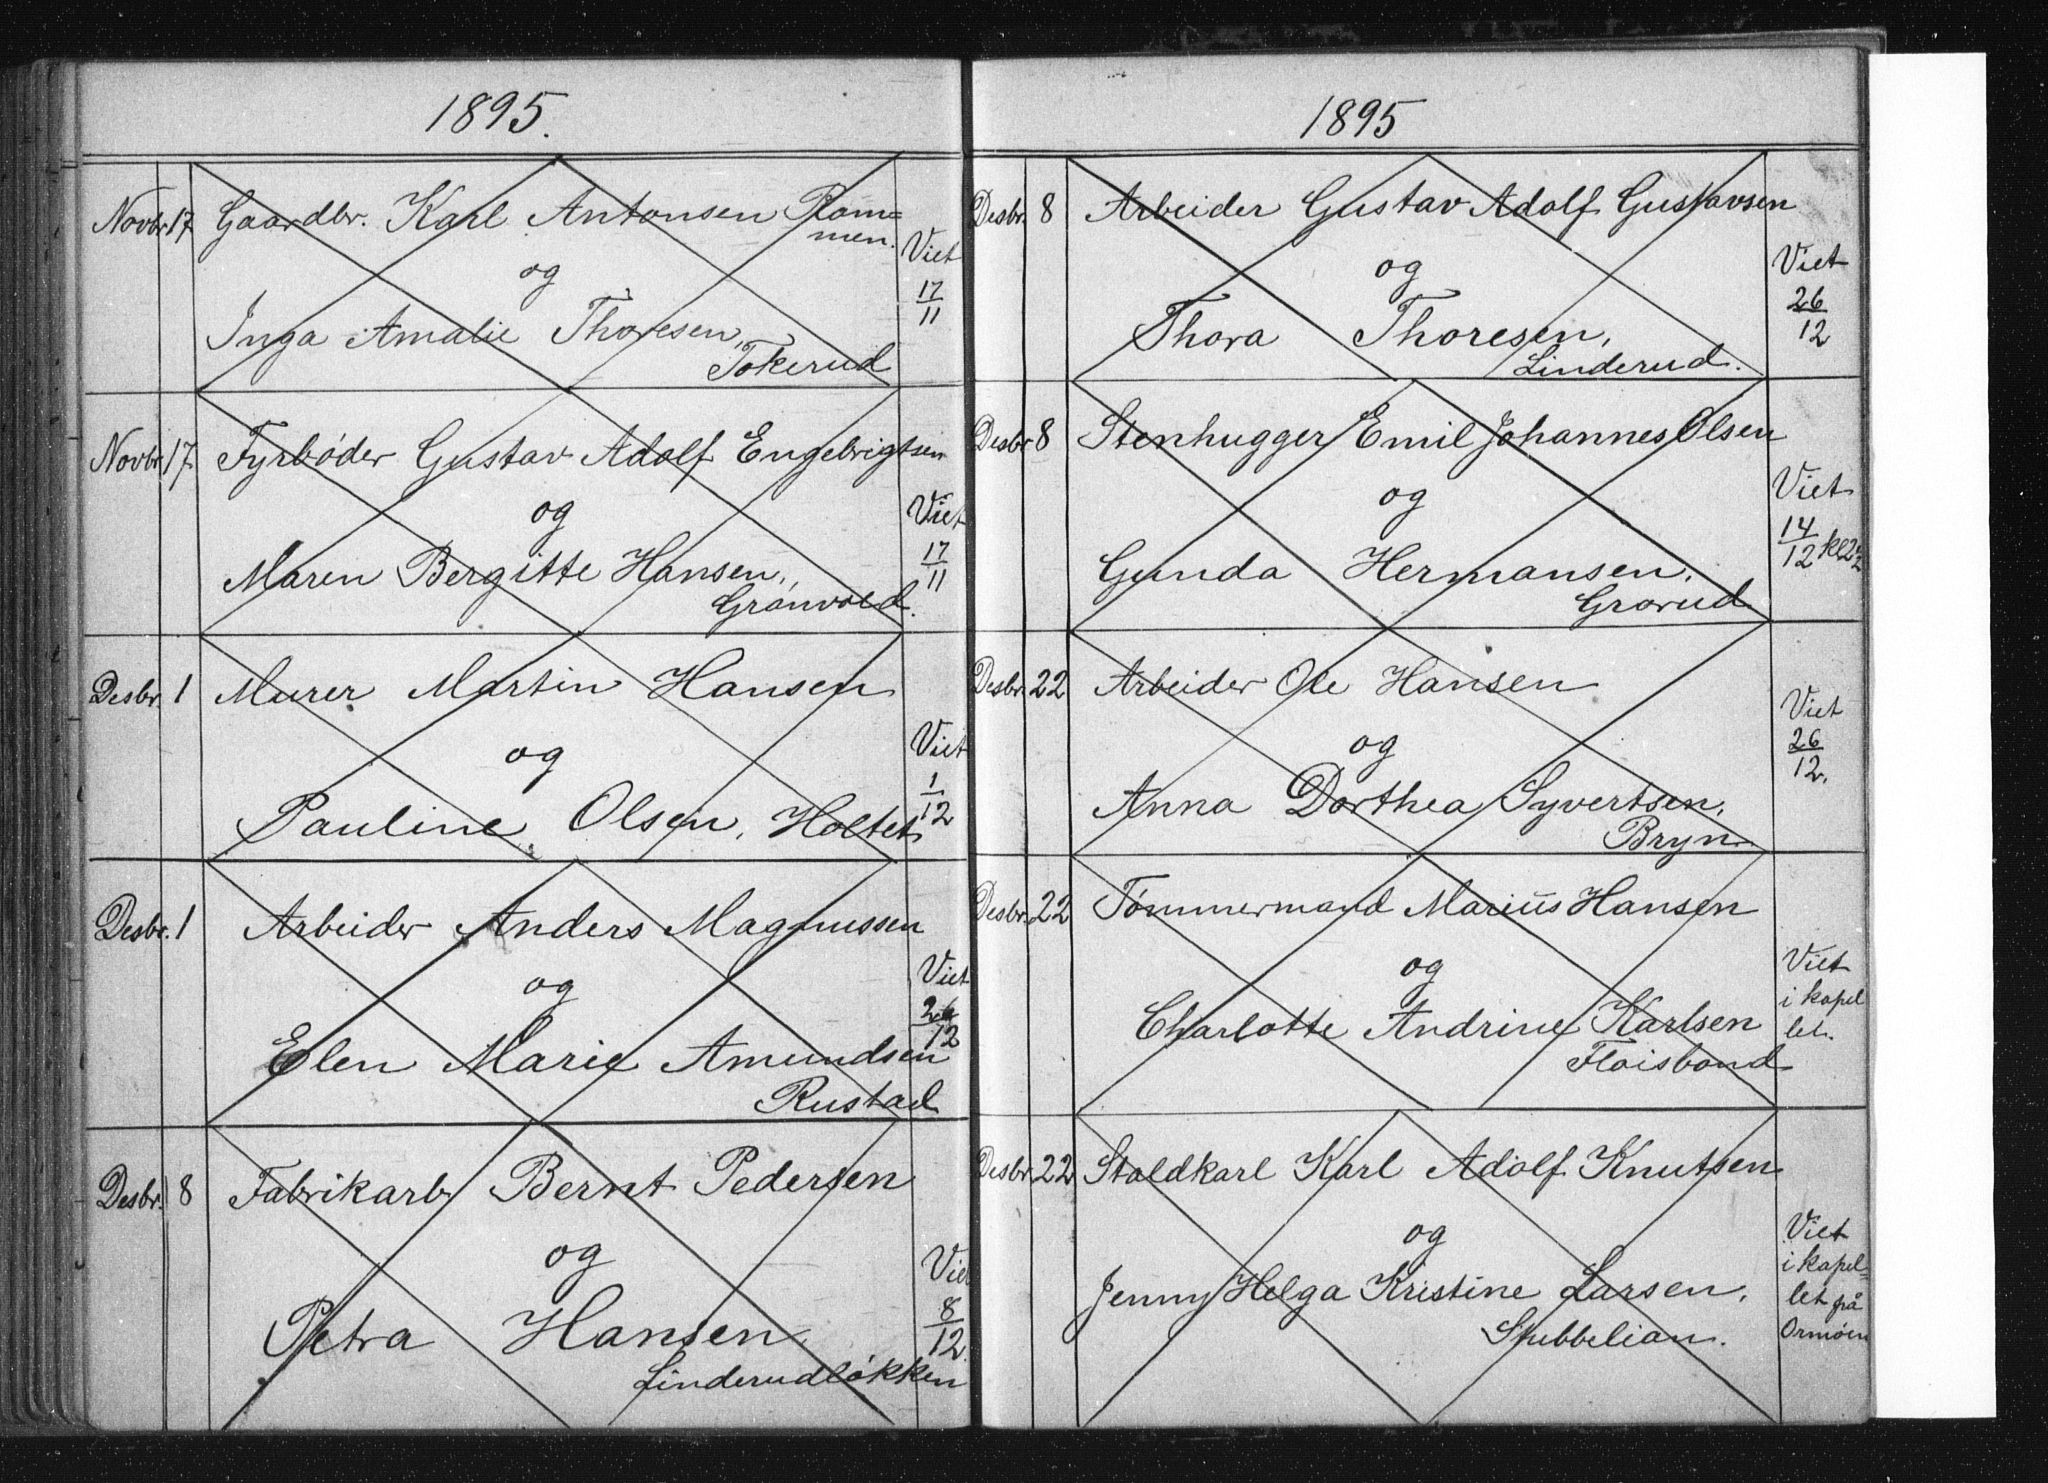 1895.
Novbr. 17 Gaardbr. Karl Antonsen Rom=
men.
og
Viet 17/11
Inga Amalie Thoresen,
Tokerud
Novbr. 17 Fyrbøder Gustav Adolf Engebrigtsen
og
Viet 17/11
Maren Bergitte Hansen,
Grønvold.
Desbr. 1 Murer Martin Hansen
og
Viet 1/12
Pauline Olsen, Holtet
Desbr. 1 Arbeider Anders Magnussen
og
Viet 26/12
Elen Marie Amundsen
Rustad
Desbr. 8 Fabrikarb. Bernt Pedersen
og
Viet 8/12.
Petra Hansen
Linderudløkken
1895
Desbr. 8 Arbeider Gustav Adolf Gustavsen
og
Viet 26/12
Thora Thoresen,
Linderud.
Desbr. 8 Stenhugger Emil Johannes Olsen
og
Viet 14/12 kl 2 1/2
Gunda Hermansen,
Grorud
Desbr. 22 Arbeider Ole Hansen
og
Viet 26/12.
Anna Dorthea Syvertsen,
Bryn
Desbr. 22 Tømmermand Marius Hansen
og
Viet
i kapel
let.
Charlotte Andrine Karlsen
Fløisbond
Desbr. 22 Staldkarl Karl Adolf Knutsen
og
Viet
i kapel=
let på
Ormøen
Jenny Helga Kristine Larsen,
Stubbelian.